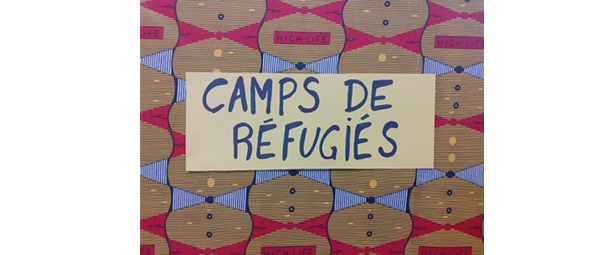 HIGH-LIFE
LIFE
HIGH-LIFE
CAMPS DE
RÉFUGIÉS
HIGH-LIFE
HIGH-LIFE